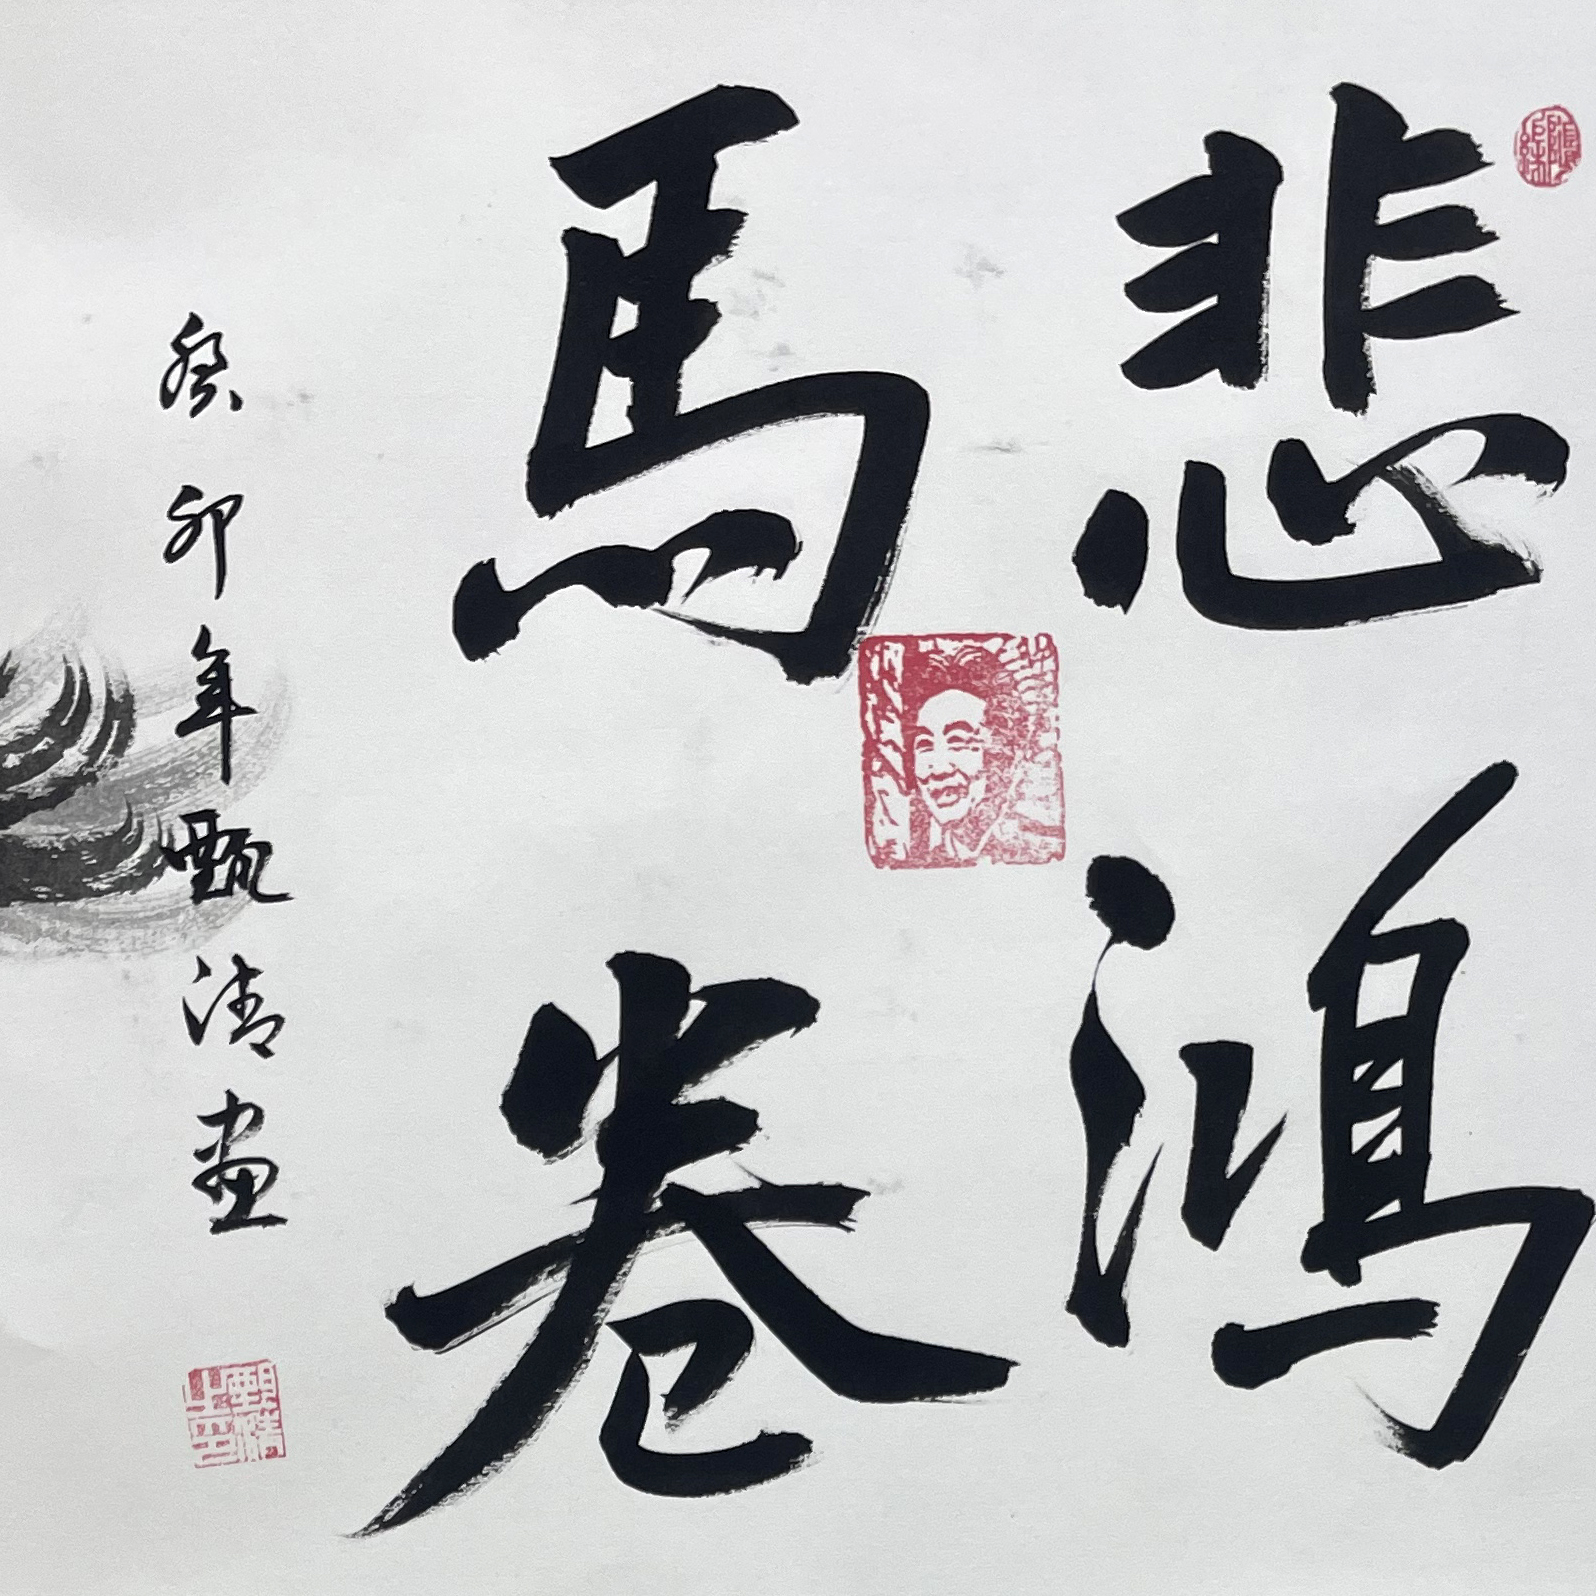 悲鴻
馬卷
癸卯年甄清画